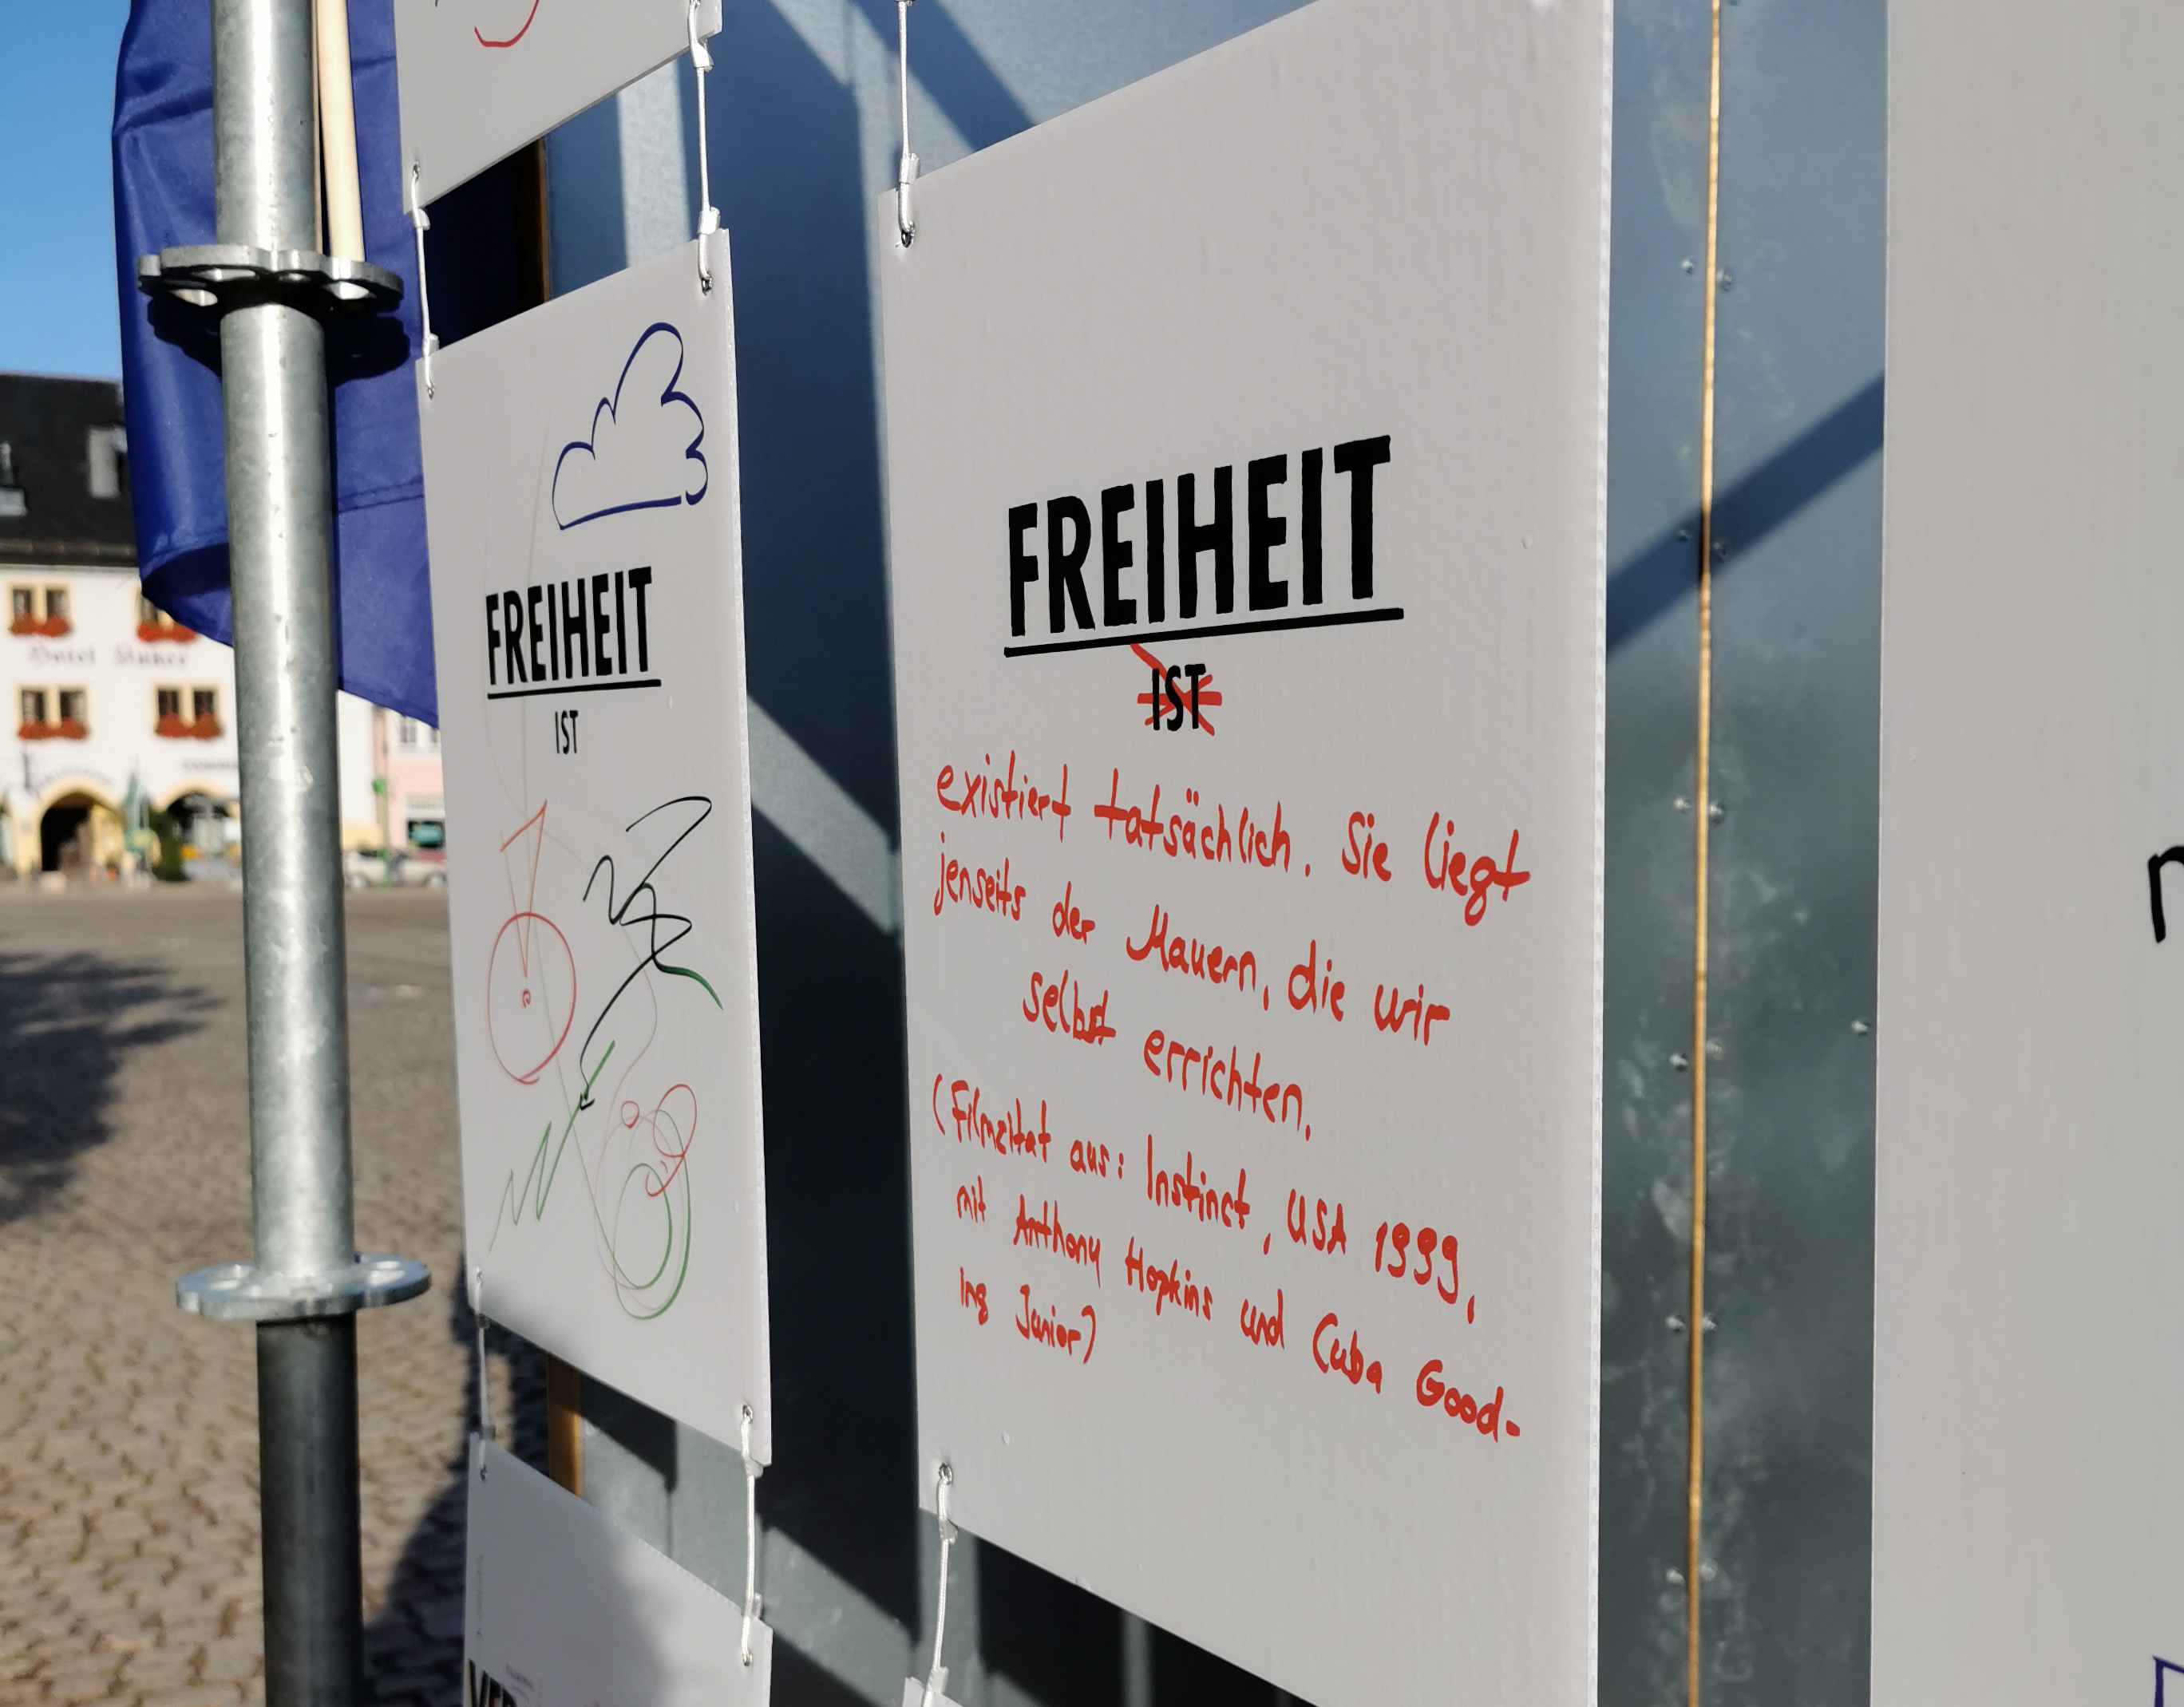 FREIHEIT
IST
FREIHEIT
IST
existiert tatsächlich. Sie liegt
jenseits der Mauern, die wir
selbst errichten.
(Filmzitat aus: Instinct, USA 1999,
mit Anthony Hopkins und Cuba Good-
ing Junior)